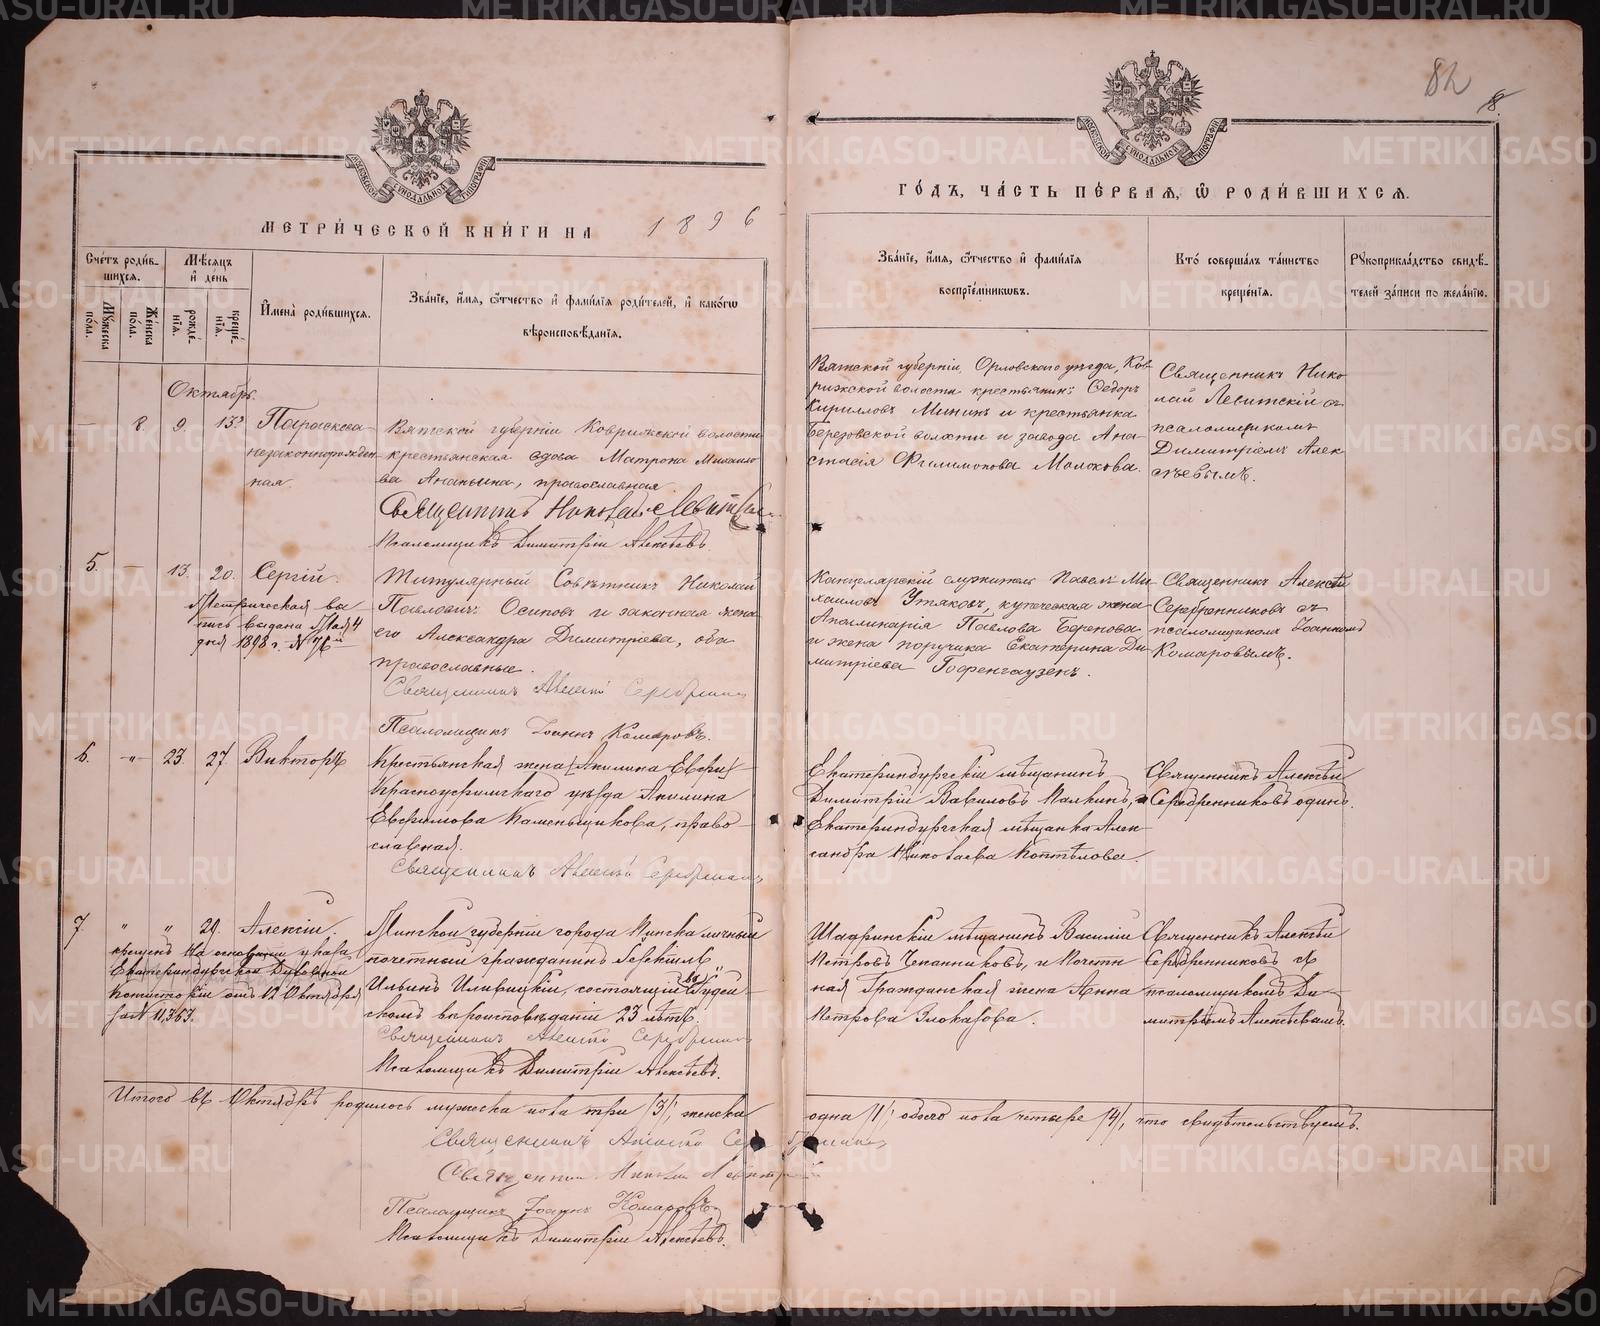 82
8
МЕТРИ́ЧЕСКОЙ КНИ́ГИ НА 1896
ГО́ДЪ, ЧА́СТЬ ПЕ́РВАЯ, Ѽ РОДИ́ВШИХСЯ.
МОСКОВСКОЙ СѴНОДАЛЬНОЙ ТИПОГРАФІИ
МОСКОВСКОЙ СѴНОДАЛЬНОЙ ТИПОГРАФІИ
Сче́тъ роди́в-
шихся.
Му́жеска по́ла.
Же́нска по́ла.
Мѣ́сяцъ
и҆ де́нь
рожде́-
нїѧ.
креще́-
нїѧ.
И҆мена̀ роди́вшихся.
Зва́нїе, и҆́мя, ѻ҆́тчество и҆ фами́лїя роди́телей, и҆ како́гѡ
вѣроисповѣ́данїя.
Зва́нїе, и҆́мя, ѻ҆́тчество и҆ фами́лїя
воспрїе́мникѡвъ.
Кто̀ соверша́лъ та́инство
креще́нїя.
Рꙋкоприкла́дство свидѣ́-
телей за́писи по жела́нїю.
Октябрь.
— 8 9. 13. Параскева
незаконнорожден-
ная.
Вятской губерніи Коврижской волости
крестьянская вдова Матрона Михаило-
ва Ананьина, православная
Священникъ Николай Левитскій
Псаломщикъ Димитрій Алексѣевъ.
Вятской губерніи, Орловскаго уѣзда, Ков-
рижской волости крестьянинъ Ѳедоръ
Кирилловъ Мининъ и крестьянка
Березовской волости и завода Ана-
стасія Филимонова Молокова.
Священникъ Нико
лай Левитскій съ
псаломщикомъ
Димитріемъ Алек-
сѣевымъ.
5. — 13. 20. Сергій.
Метрическая вы
пись выдана Мая 4
дня 1898 г. №
Титулярный Совѣтникъ Николай
Павловичъ Осиповъ и законная жена
его Александра Димитріева, оба
православные.
Священникъ Алексій Серебренниковъ
Псаломщикъ Іоаннъ Комаровъ.
Канцелярскій служитель Павелъ Ми-
хаиловъ Утяковъ, купеческая жена
Аполлинарія Павлова Беренова
и жена поручика Екатерина Ди-
митріева Гофенгаузенъ.
Священникъ Алексѣй
Серебренниковъ съ
псаломщикомъ Іоанномъ
Комаровымъ.
6. -"- 23. 27. Викторъ
Крестьянская жена
Красноуфимскаго уѣзда Акилина
Евфимова Каменьщикова, право-
славная.
Священникъ Алексій Серебренниковъ
Екатеринбургскій мѣщанинъ
Димитрій Вавиловъ Малкинъ, и
Екатеринбургская мѣщанка Алек-
сандра Николаева Коптѣлова.
Священникъ Алексѣй
Серебренниковъ одинъ.
7 " " 29. Алексій.
крещенъ на основаніи указа
Екатеринбургской Духовной
Консисторіи отъ 12 Октября
за № 11,363.
Минской губерніи города Пинска личный
почетный гражданинъ
Ильинъ, состоящій въ Іудей-
скомъ вѣроисповѣданіи 23 лѣтъ.
Священникъ Алексій Серебренниковъ
Псаломщикъ Димитрій Алексѣевъ.
Шадринскій мѣщанинъ Василій
Петровъ Чепанниковъ, и Почетн
ная Гражданская жена Анна
Петрова Злоказова.
Священникъ Алексѣй
Серебренниковъ съ
псаломщикомъ Ди-
митріемъ Алексѣевымъ.
Итого въ Октябрѣ родилось мужеска пола три /3/, женска
одна /1/, обоего пола четыре /4/, что свидѣтельствуемъ.
Священникъ Алексій Серебренниковъ
Священникъ Николай Левитскій
Псаломщикъ Іоаннъ Комаровъ.
Псаломщикъ Димитрій Алексѣевъ.
METRIKI.GASO-URAL.RU